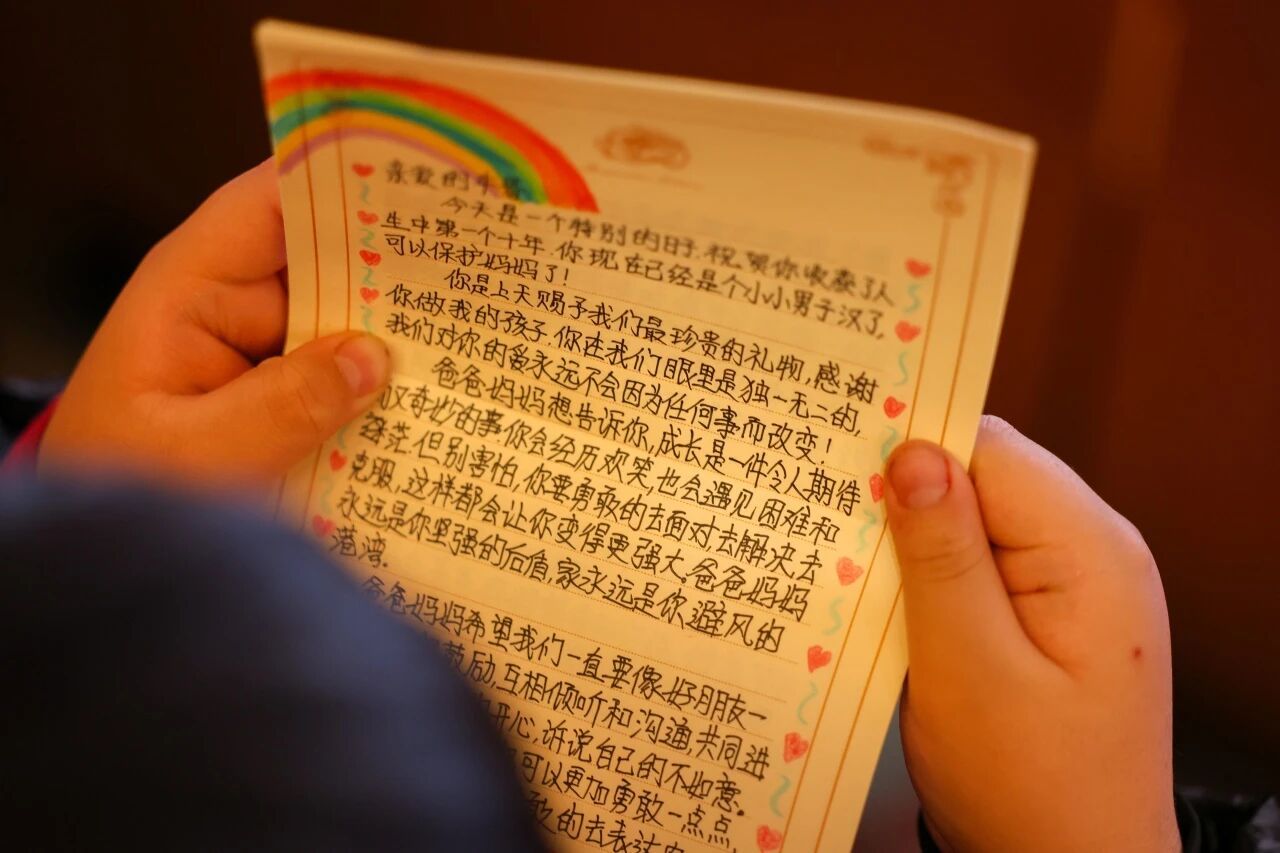 亲爱的牛
今天是一个特别的日子.祝贺你收集了人
生中第一个十年.你现在已经是个小小男子汉了,
可以保护妈妈了!
你是上天赐予我们最珍贵的礼物,感谢
你做我的孩子.你在我们眼里是独一无二的,
我们对你的爱永远不会因为任何事而改变!
爸爸妈妈想告诉你,成长是一件令人期待
又奇妙的事.你会经历欢笑,也会遇见困难和
茫.但别害怕,你要勇敢的去面对去解决去
克服.这样都会让你变得更强大.爸爸妈妈
永远是你坚强的后盾,家永远是你避风的
港湾.
爸爸妈妈希望我们一直要像好朋友一
鼓励,互相倾听和沟通,共同进
开心,诉说自己的不如意.
可以更加勇敢一点点,
的去表达